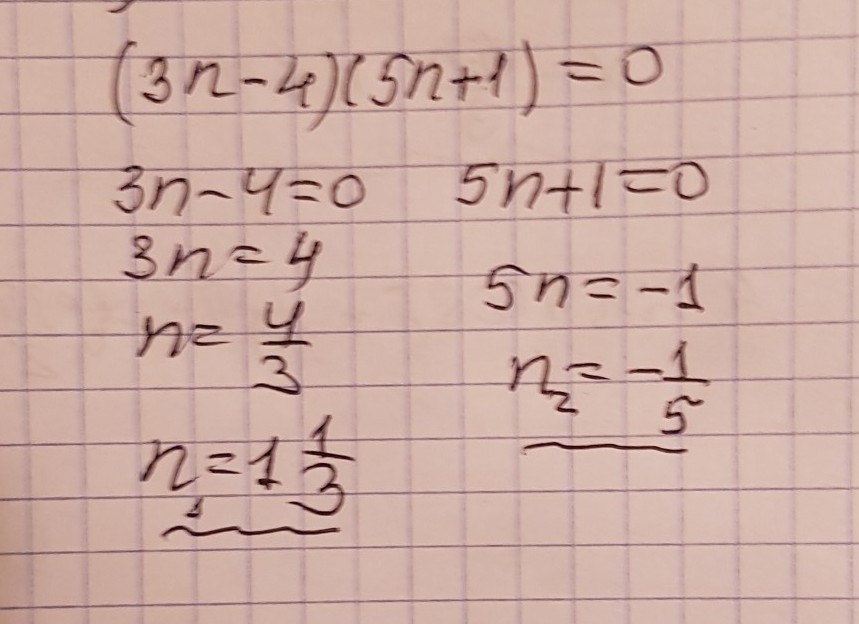 (3n-4)(5n+1) = 0
3n-4=0
3n=4
n= 4/3
n₁=1 1/3
5n+1=0
5n=-1
n₂= -1/5